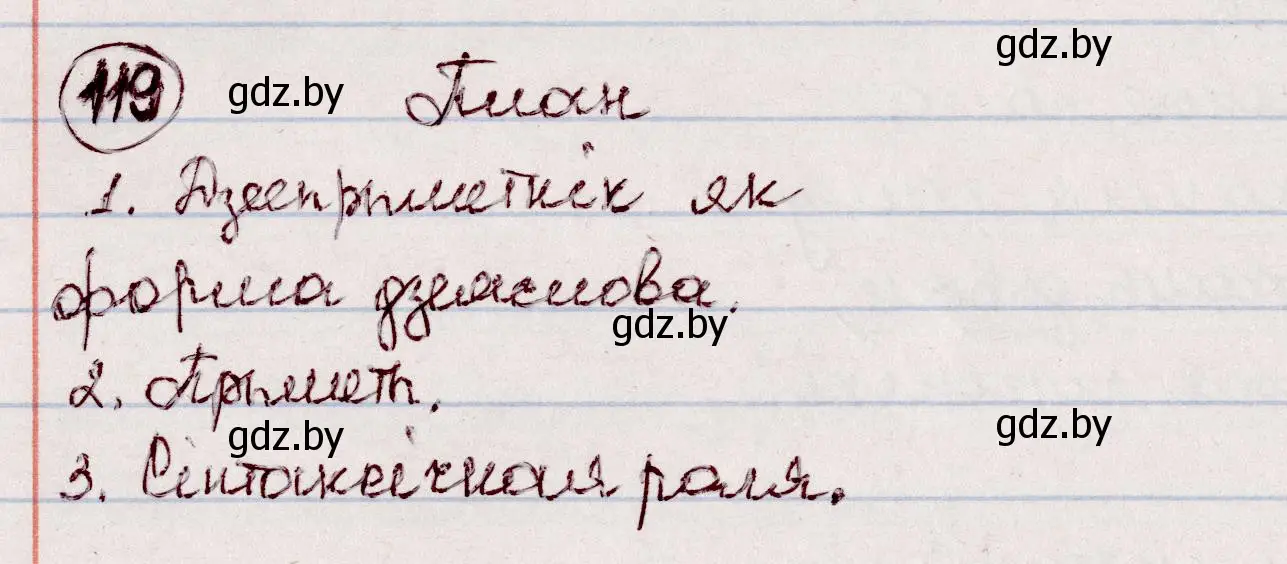 gdz.by
119 gdz.by План
1. Дзеепрыметнік як
форма дзеяслова.
gdz.by
2. Прыметы.
gdz.by gdz.by
3. Сінтаксічная роля.